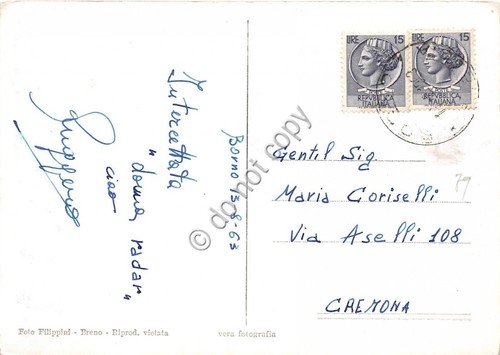 Borno 13-8-63
Intercettata
"donna radar"
ciao
Gentil Sig
Maria Coriselli
Via Aselli 108
CREMONA
79
LIRE 15
REPUBBLICA
ITALIANA
LIRE 15
REPUBBLICA
ITALIANA
Foto Filippini - Breno - Riprod. vietata
vera fotografia
© do not copy